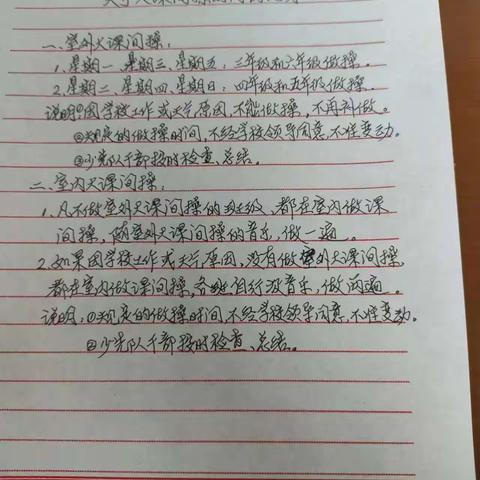 一、室外大课间操：
1、星期一、星期三、星期五：三年级和六年级做操。
2、星期二、星期四、星期日：四年级和五年级做操。
说明：①因学校工作或天气原因，不能做操，不再补做。
②规定的做操时间，不经学校领导同意，不准变动。
③少先队干部按时检查、总结。
二、室内大课间操：
1、凡不做室外大课间操的班级，都在室内做课
间操，随室外大课间操的音乐，做一遍。
2、如果因学校工作或天气原因，没有做室外大课间操，
都在室内做课间操，各班自行放音乐，做两遍。
说明：①规定的做操时间，不经学校领导同意，不准变动。
②少先队干部按时检查、总结。